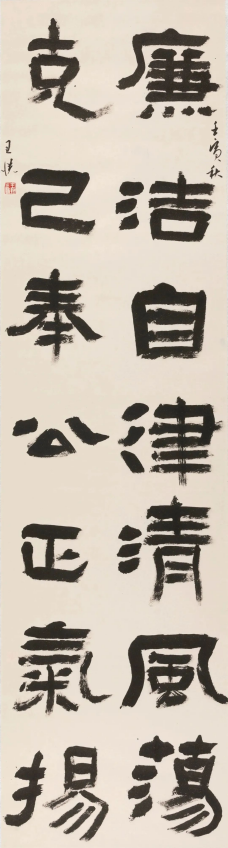 廉潔自律清風蕩
克己奉公正氣揚
壬寅秋